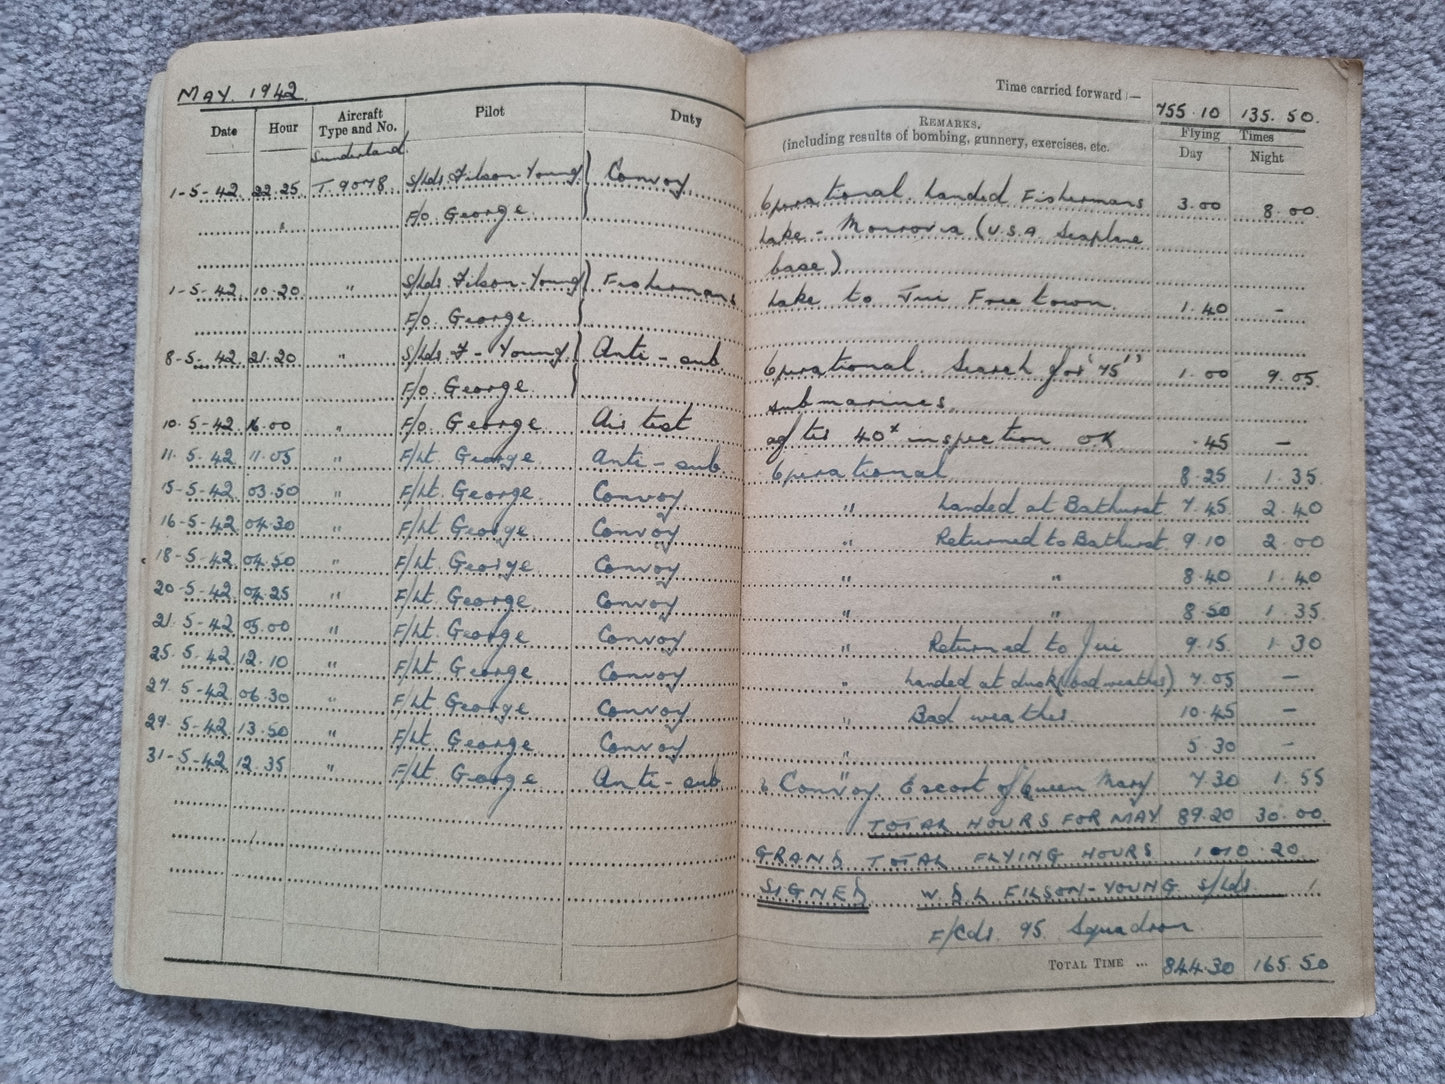 MAY. 1942.
Time carried forward :— 755.10 135.50.
Date Hour Aircraft Type and No. Pilot Duty REMARKS. (including results of bombing, gunnery, exercises, etc. Flying Times Day Night
Sunderland.
1-5-42 22.25 T.9078 S/Ldr. Filson-Young } Convoy Operational. Landed Fishermans 3.00 8.00
" F/O. George Lake - Monrovia (U.S.A. Seaplane
base).
1-5-42. 10.20 " S/Ldr. Filson-Young } Fishermans Lake to Jui Freetown. 1.40 -
F/O. George
8-5-42 21.20 " S/Ldr. F-Young } Anti-sub. Operational. Search for '75' 1.00 9.05
F/O. George submarines.
10.5.42 16.00 " F/O. George Air test after 40x inspection OK .45 —
11.5.42 11.05 " F/Lt. George Anti-sub. Operational 8.25 1.35.
15-5-42 03.50 " F/Lt. George Convoy " Landed at Bathurst 7.45 2.40
16-5-42 04.30 " F/Lt. George Convoy " Returned to Bathurst. 9.10 2.00
18-5-42 04.50 " F/Lt. George Convoy " " 8.40 1.40
20-5-42 04.25 " F/Lt. George Convoy " " 8.50 1.35
21.5-42 05.00 " F/Lt. George Convoy " Returned to Jui 9.15 1.30
25.5.42 12.10 " F/Lt. George Convoy " Landed at dusk (bad weather) 7.05 —
27.5-42 06.30 " F/Lt. George Convoy " Bad weather. 10.45 —
29.5-42 13.50 " F/Lt George Convoy " 5.30 —
31-5-42 12.35 " F/Lt George Anti-sub. & Convoy Escort of Queen Mary 7.30 1.55
TOTAL HOURS FOR MAY 89.20 30.00
GRAND TOTAL FLYING HOURS 1010.20
SIGNED W.B.L. FILSON-YOUNG S/Ldr.
F/Cdr. 95 Squadron
TOTAL TIME ... 844.30 165.50